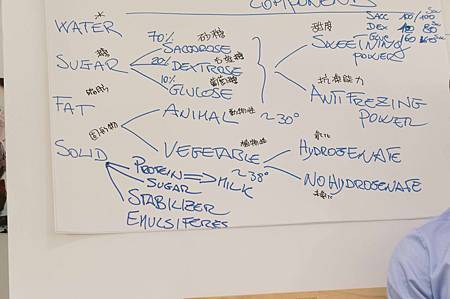 COMPONENTS
WATER *
糖
SUGAR
70% 砂糖
SACCOROSE
20% 右旋糖
DEXTROSE
10% 葡萄糖
GLUCOSE
甜度
SWEETNING POWER
SACC 100/100
DEX
抗凍能力
ANTIFREZING POWER
脂肪
FAT
ANIMAL 動物性 ~30°
VEGETABLE 植物性 ~38°
HYDROGENATE
NO HYDROGENATE
固形物
SOLID
PROTEIN
SUGAR
MILK
STABILIZER
EMULSIFERES